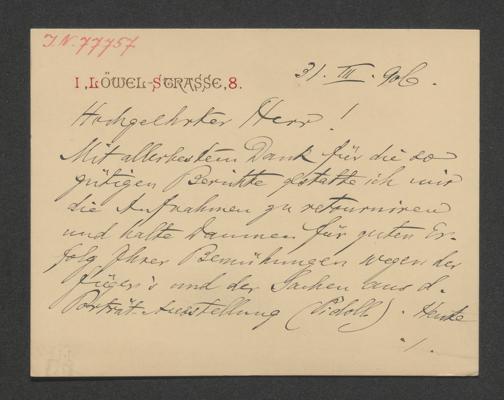 I.N. 77757
I, LÖWEL-STRASSE, 8.
31. III. 906.
Hochgeehrter Herr!
Mit allerbestem Dank für die so
gütigen Berichte gestatte ich mir
die Aufnahmen zu retourniren
und halte Daumen für guten Er-
folg Ihrer Bemühungen wegen der
Füger's und der Sachen aus d.
Porträt-Ausstellung (Pidoll). Heute
./.